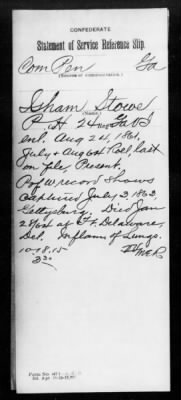 CONFEDERATE
Statement of Service Reference Slip.
Com Pen Ga
(SOURCE OF COMMUNICATION.)
Isham Stowe
(Name.)
P H 24 Ga
enl. Aug 24, 1861.
July & August Roll, last
on file, Present.
Pof W record shows
captured July 3 1863
Gettysburg. Died Jan
28/64 at Ft. Delaware,
Del. Inflam of Lungs.
10-18.15